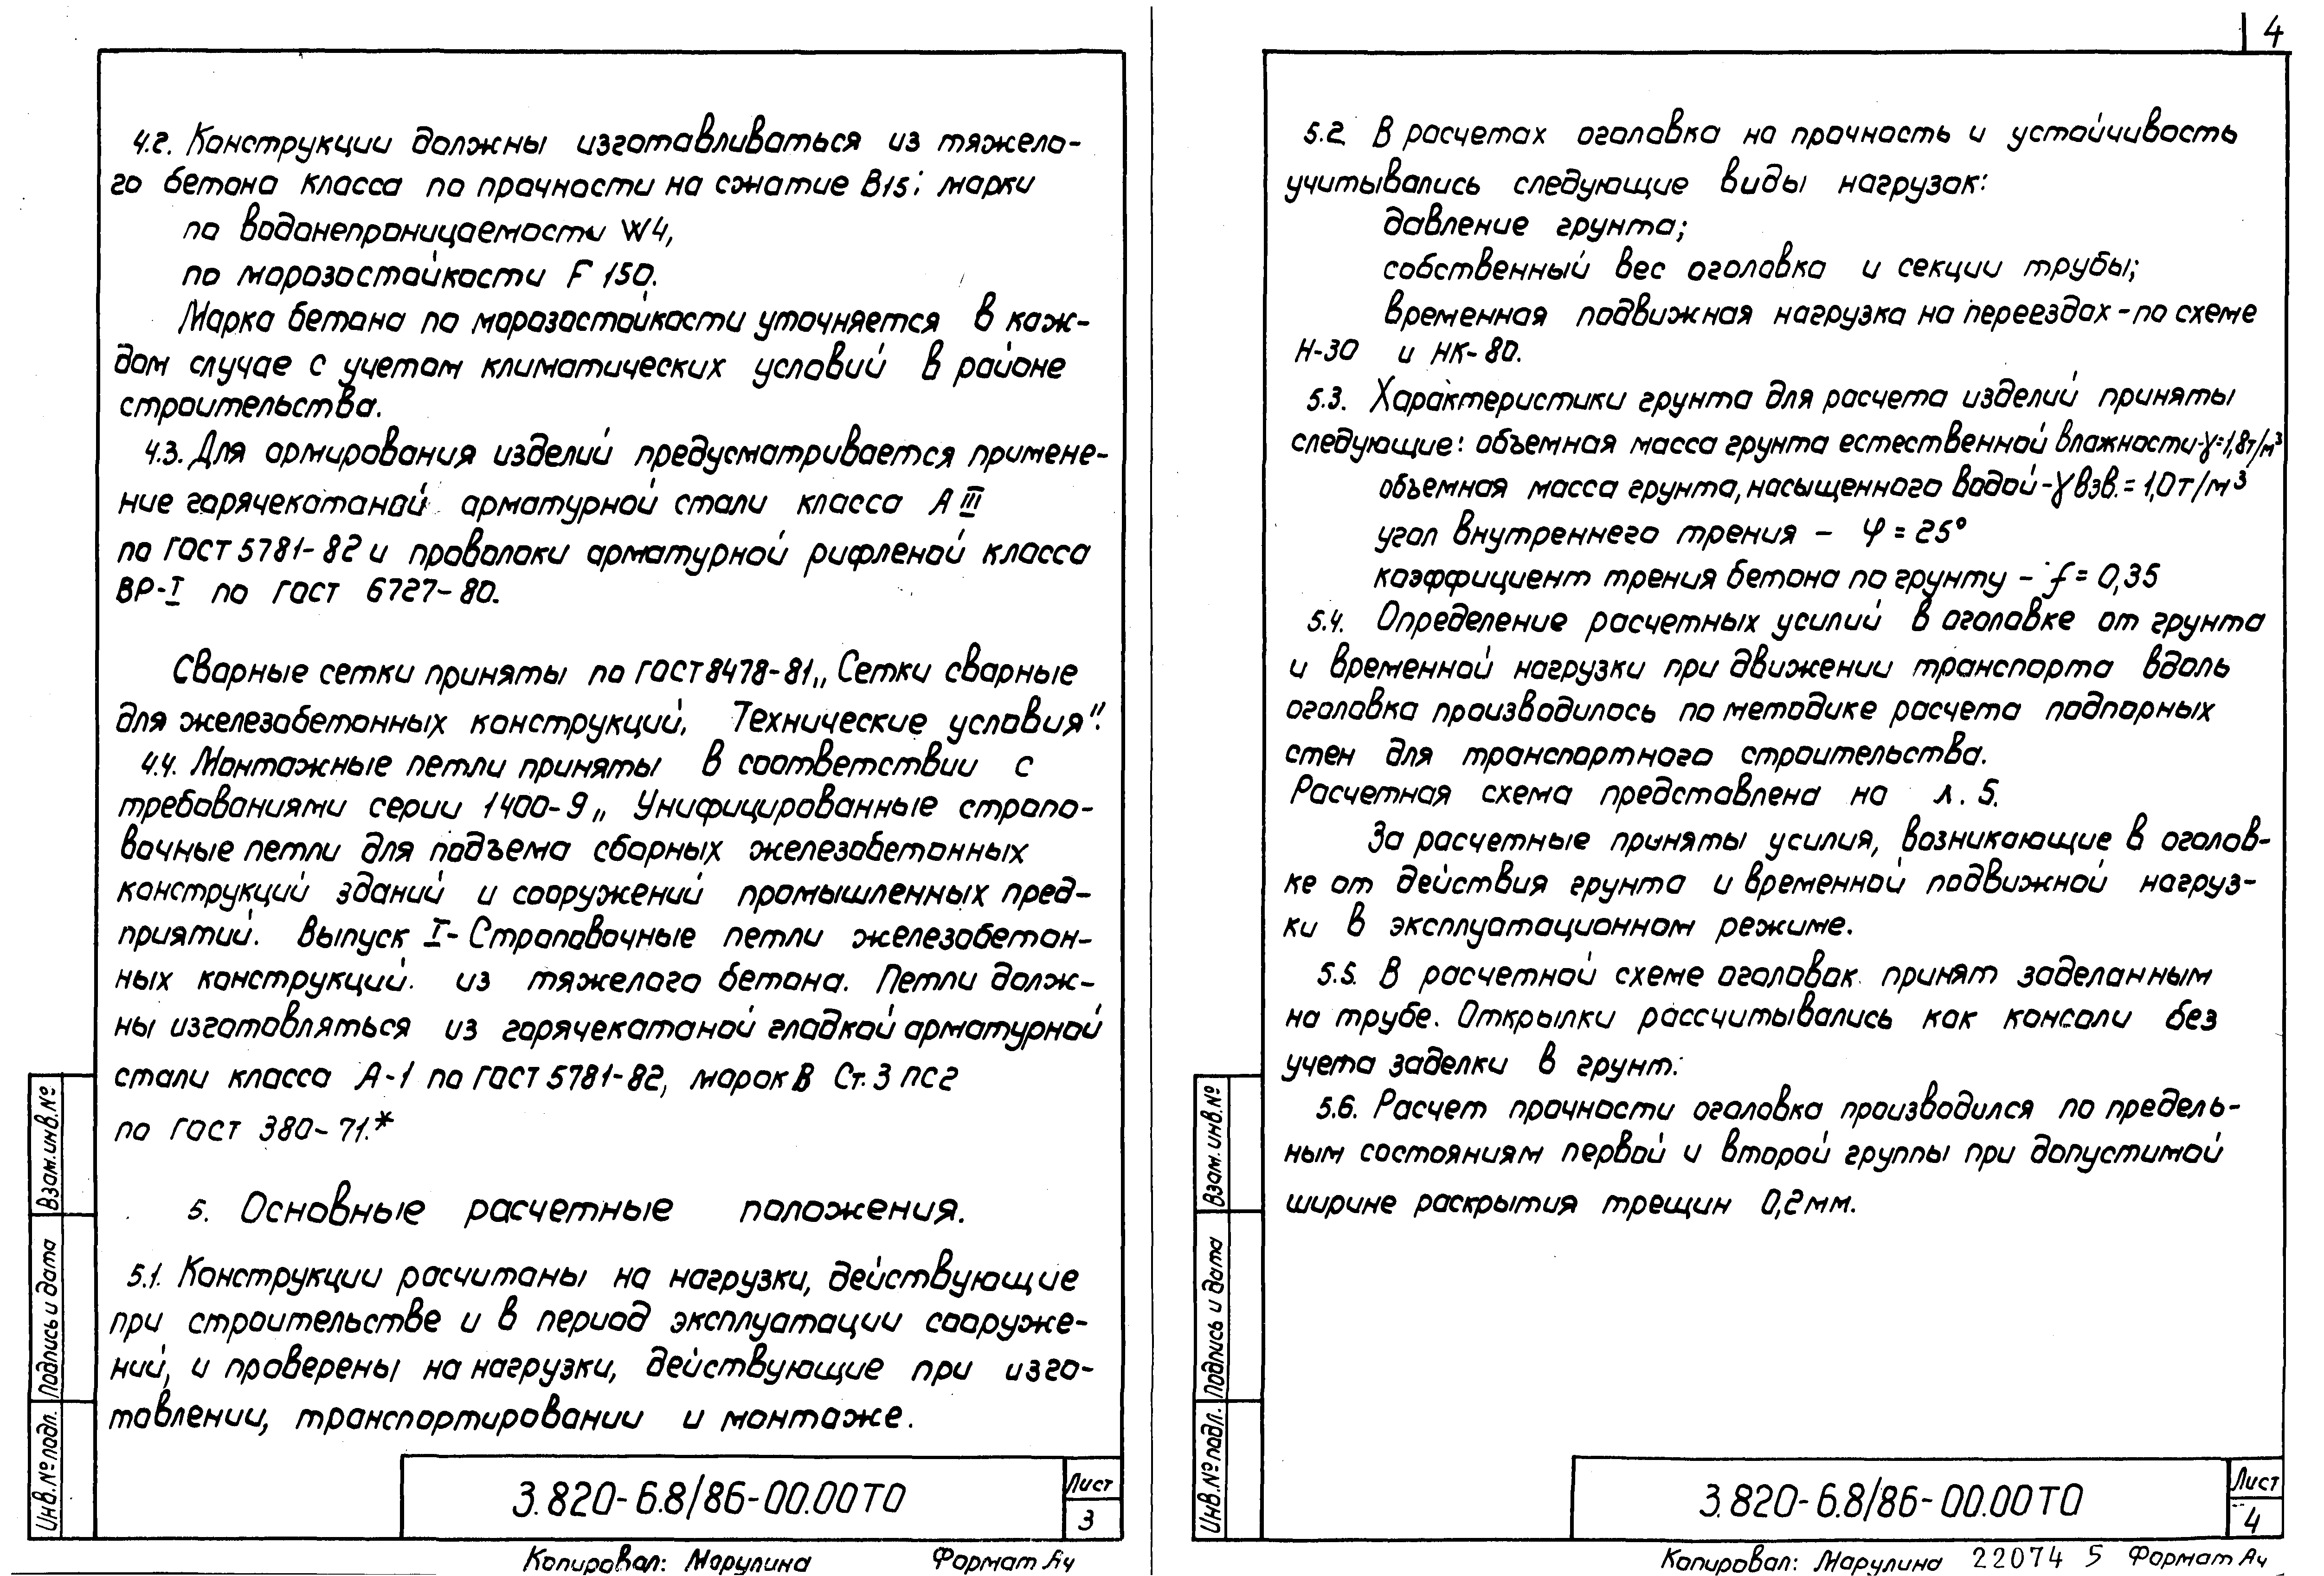 4.2. Конструкции должны изготавливаться из тяжело-
го бетона класса по прочности на сжатие В15; марки
по водонепроницаемости W4,
по морозостойкости F 150.
Марка бетона по морозостойкости уточняется в каж-
дом случае с учетом климатических условий в районе
строительства.
4.3. Для армирования изделий предусматривается примене-
ние горячекатаной арматурной стали класса А III
по ГОСТ 5781-82 и проволоки арматурной рифленой класса
ВР-I по ГОСТ 6727-80.
Сварные сетки приняты по ГОСТ 8478-81 „Сетки сварные
для железобетонных конструкций. Технические условия".
4.4. Монтажные петли приняты в соответствии с
требованиями серии 1400-9 „Унифицированные стропо-
вочные петли для подъема сборных железобетонных
конструкций зданий и сооружений промышленных пред-
приятий. Выпуск I - Строповочные петли железобетон-
ных конструкций. из тяжелого бетона. Петли долж-
ны изготовляться из горячекатаной гладкой арматурной
стали класса А-1 по ГОСТ 5781-82, марок В Ст. 3 пс2
по ГОСТ 380-71.*
5. Основные расчетные положения.
5.1. Конструкции расчитаны на нагрузки, действующие
при строительстве и в период эксплуатации сооруже-
ний, и проверены на нагрузки, действующие при изго-
товлении, транспортировании и монтаже.
Взам.инв.№
Подпись и дата
Инв.№ подл.
3.820-6.8/86-00.00ТО
Лист
3
Копировал: Марулина Формат А4
4
5.2 В расчетах оголовка на прочность и устойчивость
учитывались следующие виды нагрузок:
давление грунта;
собственный вес оголовка и секции трубы;
временная подвижная нагрузка на переездах - по схеме
Н-30 и НК-80.
5.3. Характеристики грунта для расчета изделий приняты
следующие: объемная масса грунта естественной влажности-γ=1,8т/м³
объемная масса грунта, насыщенного водой-γ взв.=1,0т/м³
угол внутреннего трения - φ = 25°
коэффициент трения бетона по грунту - f = 0,35
5.4. Определение расчетных усилий в оголовке от грунта
и временной нагрузки при движении транспорта вдоль
оголовка производилось по методике расчета подпорных
стен для транспортного строительства.
Расчетная схема представлена на л. 5.
За расчетные приняты усилия, возникающие в оголов-
ке от действия грунта и временной подвижной нагруз-
ки в эксплуатационном режиме.
5.5. В расчетной схеме оголовок принят заделанным
на трубе. Открылки рассчитывались как консоли без
учета заделки в грунт.
5.6. Расчет прочности оголовка производился по предель-
ным состояниям первой и второй группы при допустимой
ширине раскрытия трещин 0,2мм.
Взам.инв.№
Подпись и дата
Инв.№ подл.
3.820-6.8/86-00.00ТО
Лист
4
Копировал: Марулина 22074 5 Формат А4